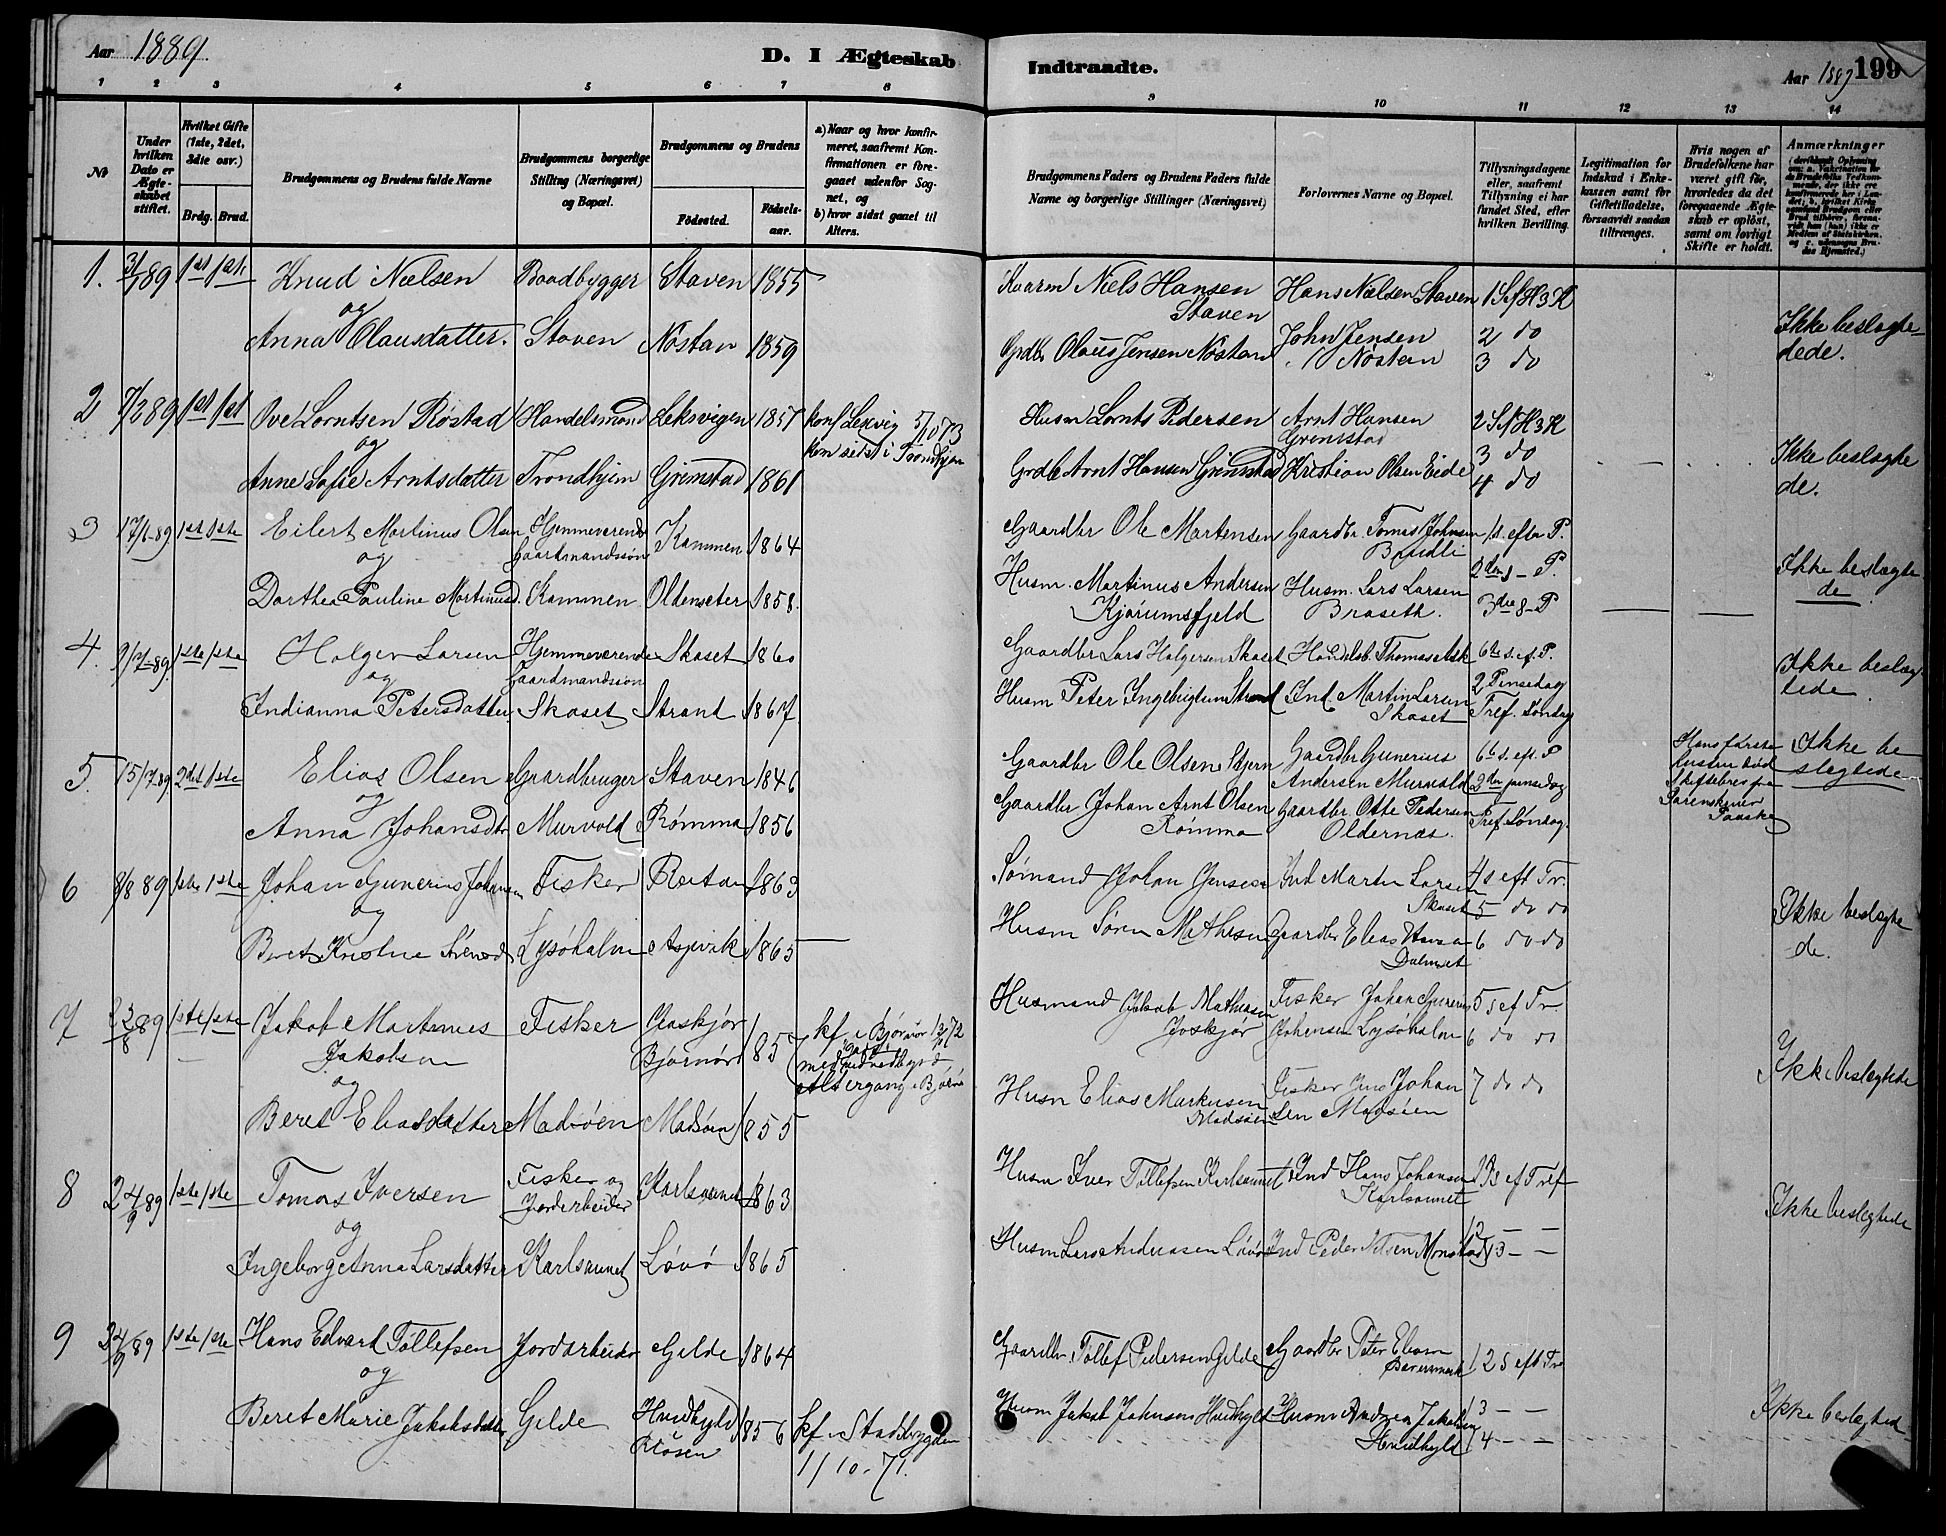 Aar 1889.
D. I Ægteskab
Indtraadte.
Aar 1889
199
1 2 3 4 5 6 7 8
9 10 11 12 13 14
No
Under hvilken Dato er Ægteskabet stiftet.
Hvilket Gifte (1ste, 2det, 3die osv.)
Brdg. Brud.
Brudgommens og Brudens fulde Navne
Brudgommens borgerlige Stilling (Næringsvei) og Bopæl.
Brudgommens og Brudens
Fødested.
Fødselsaar.
a) Naar og hvor konfirmeret, saafremt Konfirmationen er foregaaet udenfor Sognet, og
b) hvor sidst gaaet til Alters.
Brudgommens Faders og Brudens Faders fulde Navne og borgerlige Stillinger (Næringsvei)
Forlovernes Navne og Bopæl.
Tillysningsdagene eller, saafremt Tillysning ei har fundet Sted, efter hvilken Bevilling.
Legitimation for Indskud i Enkekassen samt for Giftetilladelse, forsaavidt saadan tiltrænges.
Hvis nogen af Brudefolkene har været gift før, hvorledes da det foregaaende Ægteskab er opløst, samt om lovligt Skifte er holdt.
Anmærkninger
1. 3/1 89 1ste 1ste Knud Nielsen Baadbygger Staven 1855
Niels Hansen Staven Hans Nielsen Staven 1 S e/ H 3 K
og
Anna Olausdatter. Staven Nøstan 1859
Grdbr Olaus Jensen Nøstan John Jensen Nøstan 2 do
3 do
Ikke beslægtedede.
2 7/2 89 1ste 1ste Ove Lorntsen Røstad Handelsmand Leksvigen 1857 konf Lexvig 5/10 73
kom sidst i Trondhjem
Husm Lornts Pedersen Arnt Hansen Gremstad 2 S e/ H 3 K
og
3 do
Anne Sofie Arntsdatter Trondhjem Gremstad 1861
Grdbr Arnt Hansen Gremstad Kristian Olsen Eide 4 do
Ikke beslægtede.
3 17/6 89 1ste 1ste Eilert Martinus Olsen Hjemmeværende Gaardmandssøn Kammen 1864
Gaardbr Ole Martensen Gaardbr. Tomas Johnsen 1 s. efter P.
og
Dorthea Pauline Martinusd. Kammen Oldenseter 1858.
Husm. Martinus Andersen Kjørumsfjeld Husm. Lars Larsen Braseth. 2den s - P.
3die s - P
Ikke beslægtede
4. 9/7 89. 1ste 1ste Holger Larsen Hjemmeværende Gaardmandssøn Skaset 1860
Gaardbr Lars Holgersen Skaset Handelsb. Thomas Ask 6te s. ef. P.
og
2 Pinsedag
Indianna Petersdatter Skaset Strand 1867.
Husm Peter Ingebrigtsen Strand Ind. Martin Larsen Skaset Tref. Søndag
Ikke beslægtede
5. 15/7 89 2det 1ste Elias Olsen Gaardbruger Staven 1846
Gaardbr Ole Olsen Gaardbr Gunerius Andersen Murvold 6te s. eft. P
og
2den pinsedag
Anna Johansdtr Murvold Rømma 1856
Gaardbr Johan Arnt Olsen Rømma Gaardbr Otte Pedersen Oldernæs. Tref Søndag.
Hans første Hustru død
Ikke beslægtede
6 8/8 89 1ste 1ste Johan Gunerius Johansen Fisker Reitan 1863
Sømand Johan Jensen Ind Martin Larsen Skaset 4 s eft Tr.
og
5 do do
Beret Kristine Sørensd Lysøholm Aspvik 1865
Husm Søren Mathisen Gaardbr Elias 6 do do
Ikke beslægtede.
7 23/8 89 1ste 1ste Jakob Martinus Jakobsen Fisker Joskjør Bjørnør 1857 kf i Bjørnør
Altergang i Bjørnør
Husmand Jakob Mathisen Joskjør Fisker Johan Gunerius Johansen Lysøholm 5 s ef Tr.
6 do do
og
Beret Eliasdatter Madsøen Madsøen 1855
Husm Elias Markusen Madsøen Fisker Jens Johansen Madsøen 7 do do
Ikke beslægtede
8 24/9 89 1ste 1ste Tomas Iversen Fisker og Jordarbeider Karlsaunet 1863
Husm Iver Tøllefsen Karlsaunet Ind Hans Johansen Karlsaunet s ef Tref
og
Ingeborg Anna Larsdatter Karlsaunet Løvø 1865
Husm Lars Andreassen Løvø Ind Peder Nilsen Monstad 12 — —
13 — —
Ikke beslægtede
9 24/9 89 1ste 1ste Hans Edvart Tøllefsen Jordarbeider Gilde 1864
Gaardbr Tøllef Pedersen Gilde Gaardbr Peter 12 s eft Tr
og
Beret Marie Jakobsdatter Gilde Hvidhyld 1856 kf. i Stadsbygden
1/10-71.
Husm Jakob Johnsen Hvidhyld Husm Andreas Jakobsen Hvidhyld 13 — —
14 — —
Ikke beslægtede